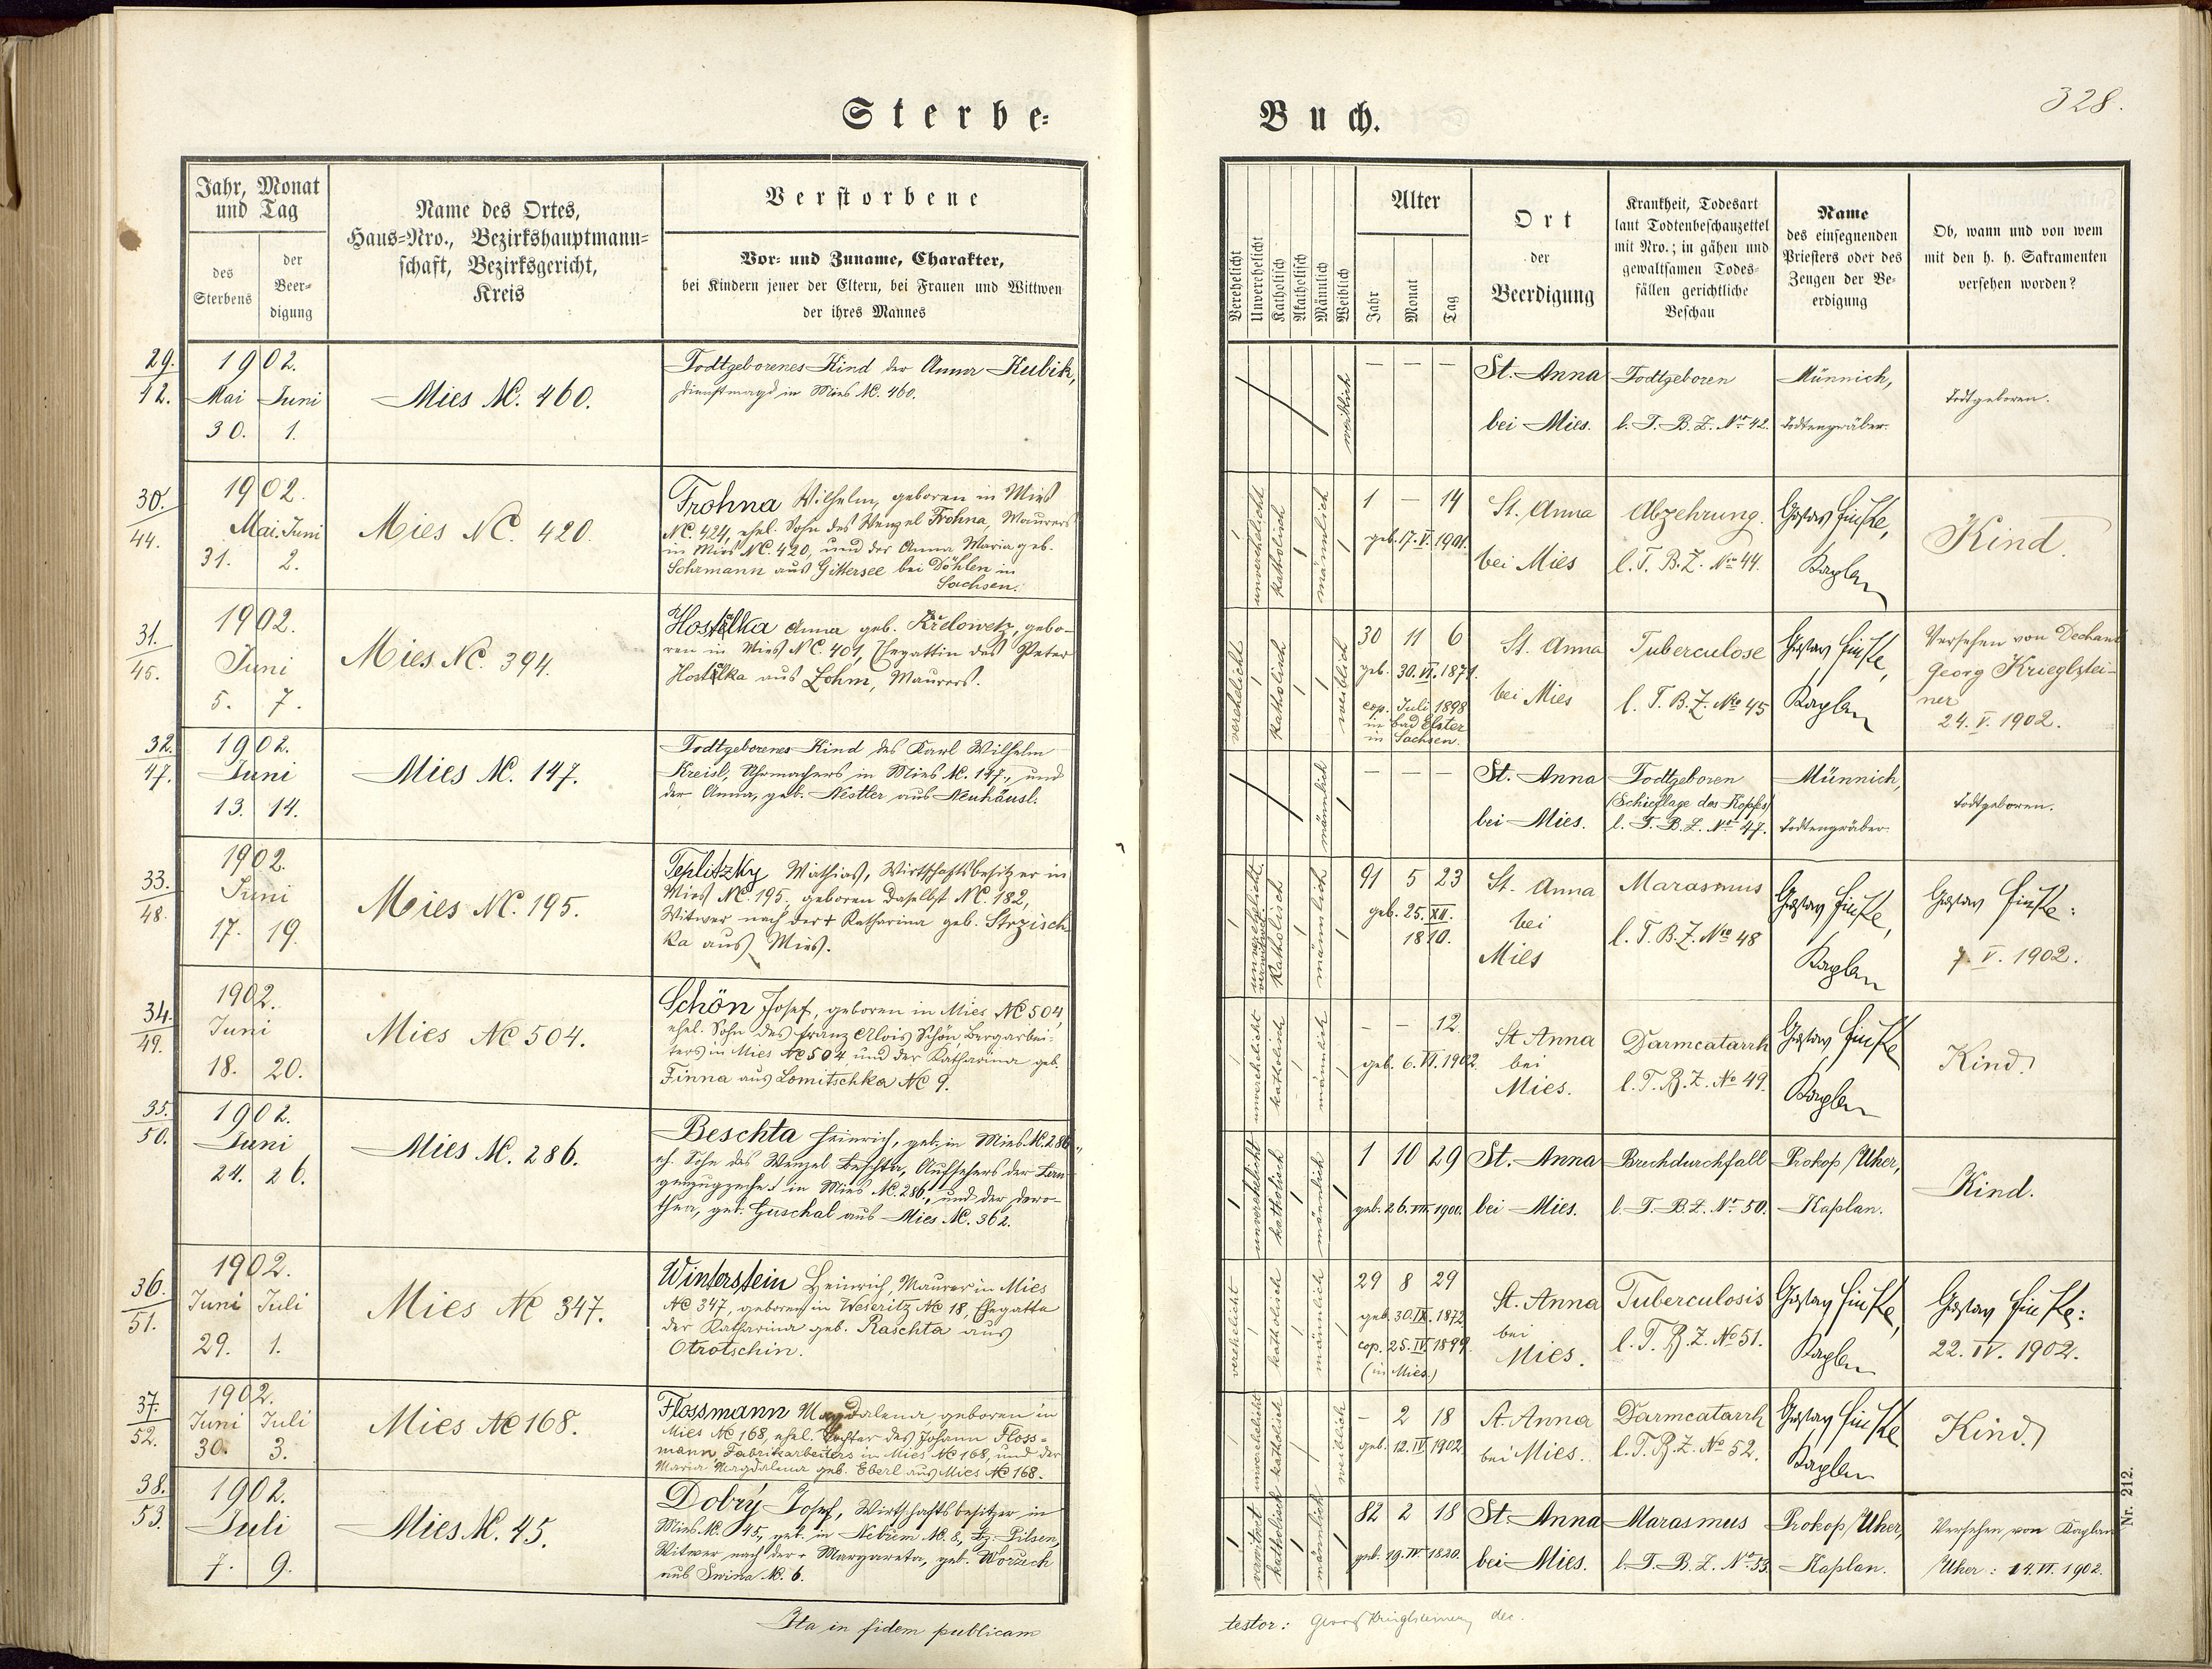 Sterbe=
Jahr, Monat
und Tag
des
Sterbens
der
Beer=
digung
Name des Ortes,
Haus=Nro., Bezirkshauptmann=
schaft, Bezirksgericht,
Kreis
Verstorbene
Vor= und Zuname, Charakter,
bei Kindern jener der Eltern, bei Frauen und Wittwen
der ihres Mannes
29.
42.
1902.
Mai Juni
30. 1.
Mies NC. 460.
Todtgeborenes Kind der Anna Kubik,
Dienstmagd in Mies NC. 460.
30.
44.
1902.
Mai. Juni
31. 2.
Mies NC. 420.
Frohna Wilhelm, geboren in Mies
NC. 424, ehel. Sohn des Wenzel Frohna, Maurers
in Mies NC. 420, und der Anna Maria geb.
Sehrmann aus Gittersee bei Döhlen in
Sachsen.
31.
45.
1902.
Juni
5. 7.
Mies NC. 394.
Anna geb. Křelowetz, gebo-
ren in Mies NC. 401, Ehegattin des Peter
aus Lohm, Maurers.
32.
47.
1902.
Juni
13. 14.
Mies NC. 147.
Todtgeborenes Kind des Karl Wilhelm
Kreisl, Uhrmachers in Mies NC. 147., und
der Anna, geb. Nestler aus Neuhäusl.
33.
48.
1902.
Juni
17. 19.
Mies NC. 195.
Teplitzky Mathias, Wirtschaftsbesitzer in
Mies NC. 195, geboren daselbst NC. 182,
Witwer nach der + Katharina geb. Strzisch-
ka aus Mies.
34.
49.
1902.
Juni
18. 20.
Mies NC 504.
Schön Josef, geboren in Mies NC 504,
ehel. Sohn des Franz Alois Schön Bergarbei-
ters in Mies NC 504 und der Katharina geb.
Finna aus Lomitschka NC 9.
35.
50.
1902.
Juni
24. 26.
Mies NC. 286.
Beschta Heinrich, geb. in Mies NC. 286.,
eh. Sohn des Wenzel Beschta, Aufsehers der
in Mies NC. 286., und der Doro-
thea, geb. Guschal aus Mies NC. 362.
36.
51.
1902.
Juni Juli
29. 1.
Mies NC 347.
Winterstein Heinrich, Maurer in Mies
NC 347, geboren in Weseritz NC 18, Ehegatte
der Katharina geb. Raschta aus
Otrotschin.
37.
52.
1902.
Juni Juli
30. 3.
Mies NC 168.
Flossmann Magdalena, geboren in
Mies NC 168, ehel. Tochter des Johann Floss=
mann, Fabriksarbeiters in Mies NC 168, und der
Maria Magdalena geb. Eberl aus Mies NC 168.
38.
53.
1902.
Juli
7. 9.
Mies NC. 45.
Dobrý Josef, Wirtschaftsbesitzer in
Mies NC. 45., geb. in Nebřem NC. 8, Bz. Pilsen,
Witwer nach der + Margareta, geb. Woruch
aus Swina NC. 6.
Ita in fidem publicam
328.
Buch.
Verehelicht
Unverehelicht
Katholisch
Akatholisch
Männlich
Weiblich
Alter
Jahr
Monat
Tag
Ort
der
Beerdigung
Krankheit, Todesart
laut Todtenbeschauzettel
mit Nro.; in gähen und
gewaltsamen Todes=
fällen gerichtliche
Beschau
Name
des einsegnenden
Priesters oder des
Zeugen der Be=
erdigung
Ob, wann und von wem
mit den h. h. Sakramenten
versehen worden?
weiblich
— — —
St. Anna
bei Mies.
Todtgeboren
l. T. B. Z. Nro 42.
Münnich,
Todtengräber.
Todtgeboren.
unverehelicht
katholisch
männlich
1 — 14
geb. 17. V. 1901.
St. Anna
bei Mies
Abzehrung.
l. T. B. Z. Nro 44.
Gustav Fuchs,
Kaplan
Kind.
verehelicht
katholisch
weiblich
30 11 6
geb. 30. VI. 1871.
cop. Juli 1898
in Bad Elster
in Sachsen.
St. Anna
bei Mies
Tuberculose
l. T. B. Z. Nro 45
Kaplan
Versehen von Dechant
Georg Krieglstei-
ner
24. V. 1902.
männlich
— — —
St. Anna
bei Mies.
Todtgeboren
(Schieflage des Kopfes)
l. T. B. Z. Nro 47.
Münnich,
Todtengräber.
Todtgeboren.
unverehelicht
katholisch
männlich
91 5 23
geb. 25. XII.
1810.
St. Anna
bei
Mies
Marasmus
l. T. B. Z. Nro 48
Kaplan
7. V. 1902.
unverehelicht
katholisch
männlich
— — 12.
geb. 6. VI. 1902.
St Anna
bei
Mies.
Darmcatarrh
l. T. B. Z. No 49.
Kaplan
Kind.
unverehelicht
katholisch
männlich
1 10 29
geb. 26. VII. 1900.
St. Anna
bei Mies.
Brechdurchfall
l. T. B. Z. Nr. 50.
Prokop Uher,
Kaplan.
Kind.
verehelicht
katholisch
männlich
29 8 29
geb. 30. IX. 1872
cop. 25. IV. 1899.
(in Mies.)
St. Anna
bei
Mies.
Tuberculosis
l. T. B. Z. No 51.
Kaplan
22. IV. 1902.
unverehelicht
katholisch
weiblich
— 2 18
geb. 12. IV. 1902
St. Anna
bei Mies.
Darmcatarrh
l. T. B. Z. No 52.
Kaplan
Kind.
verwitwet
katholisch
männlich
82 2 18
geb. 19. IV. 1820.
St. Anna
bei Mies.
Marasmus
l. T. B. Z. Nro 53.
Prokop Uher,
Kaplan.
Versehen von Kaplan
Uher: 14. VI. 1902.
Nr. 212.
testor: Georg Krieglsteiner, dec.